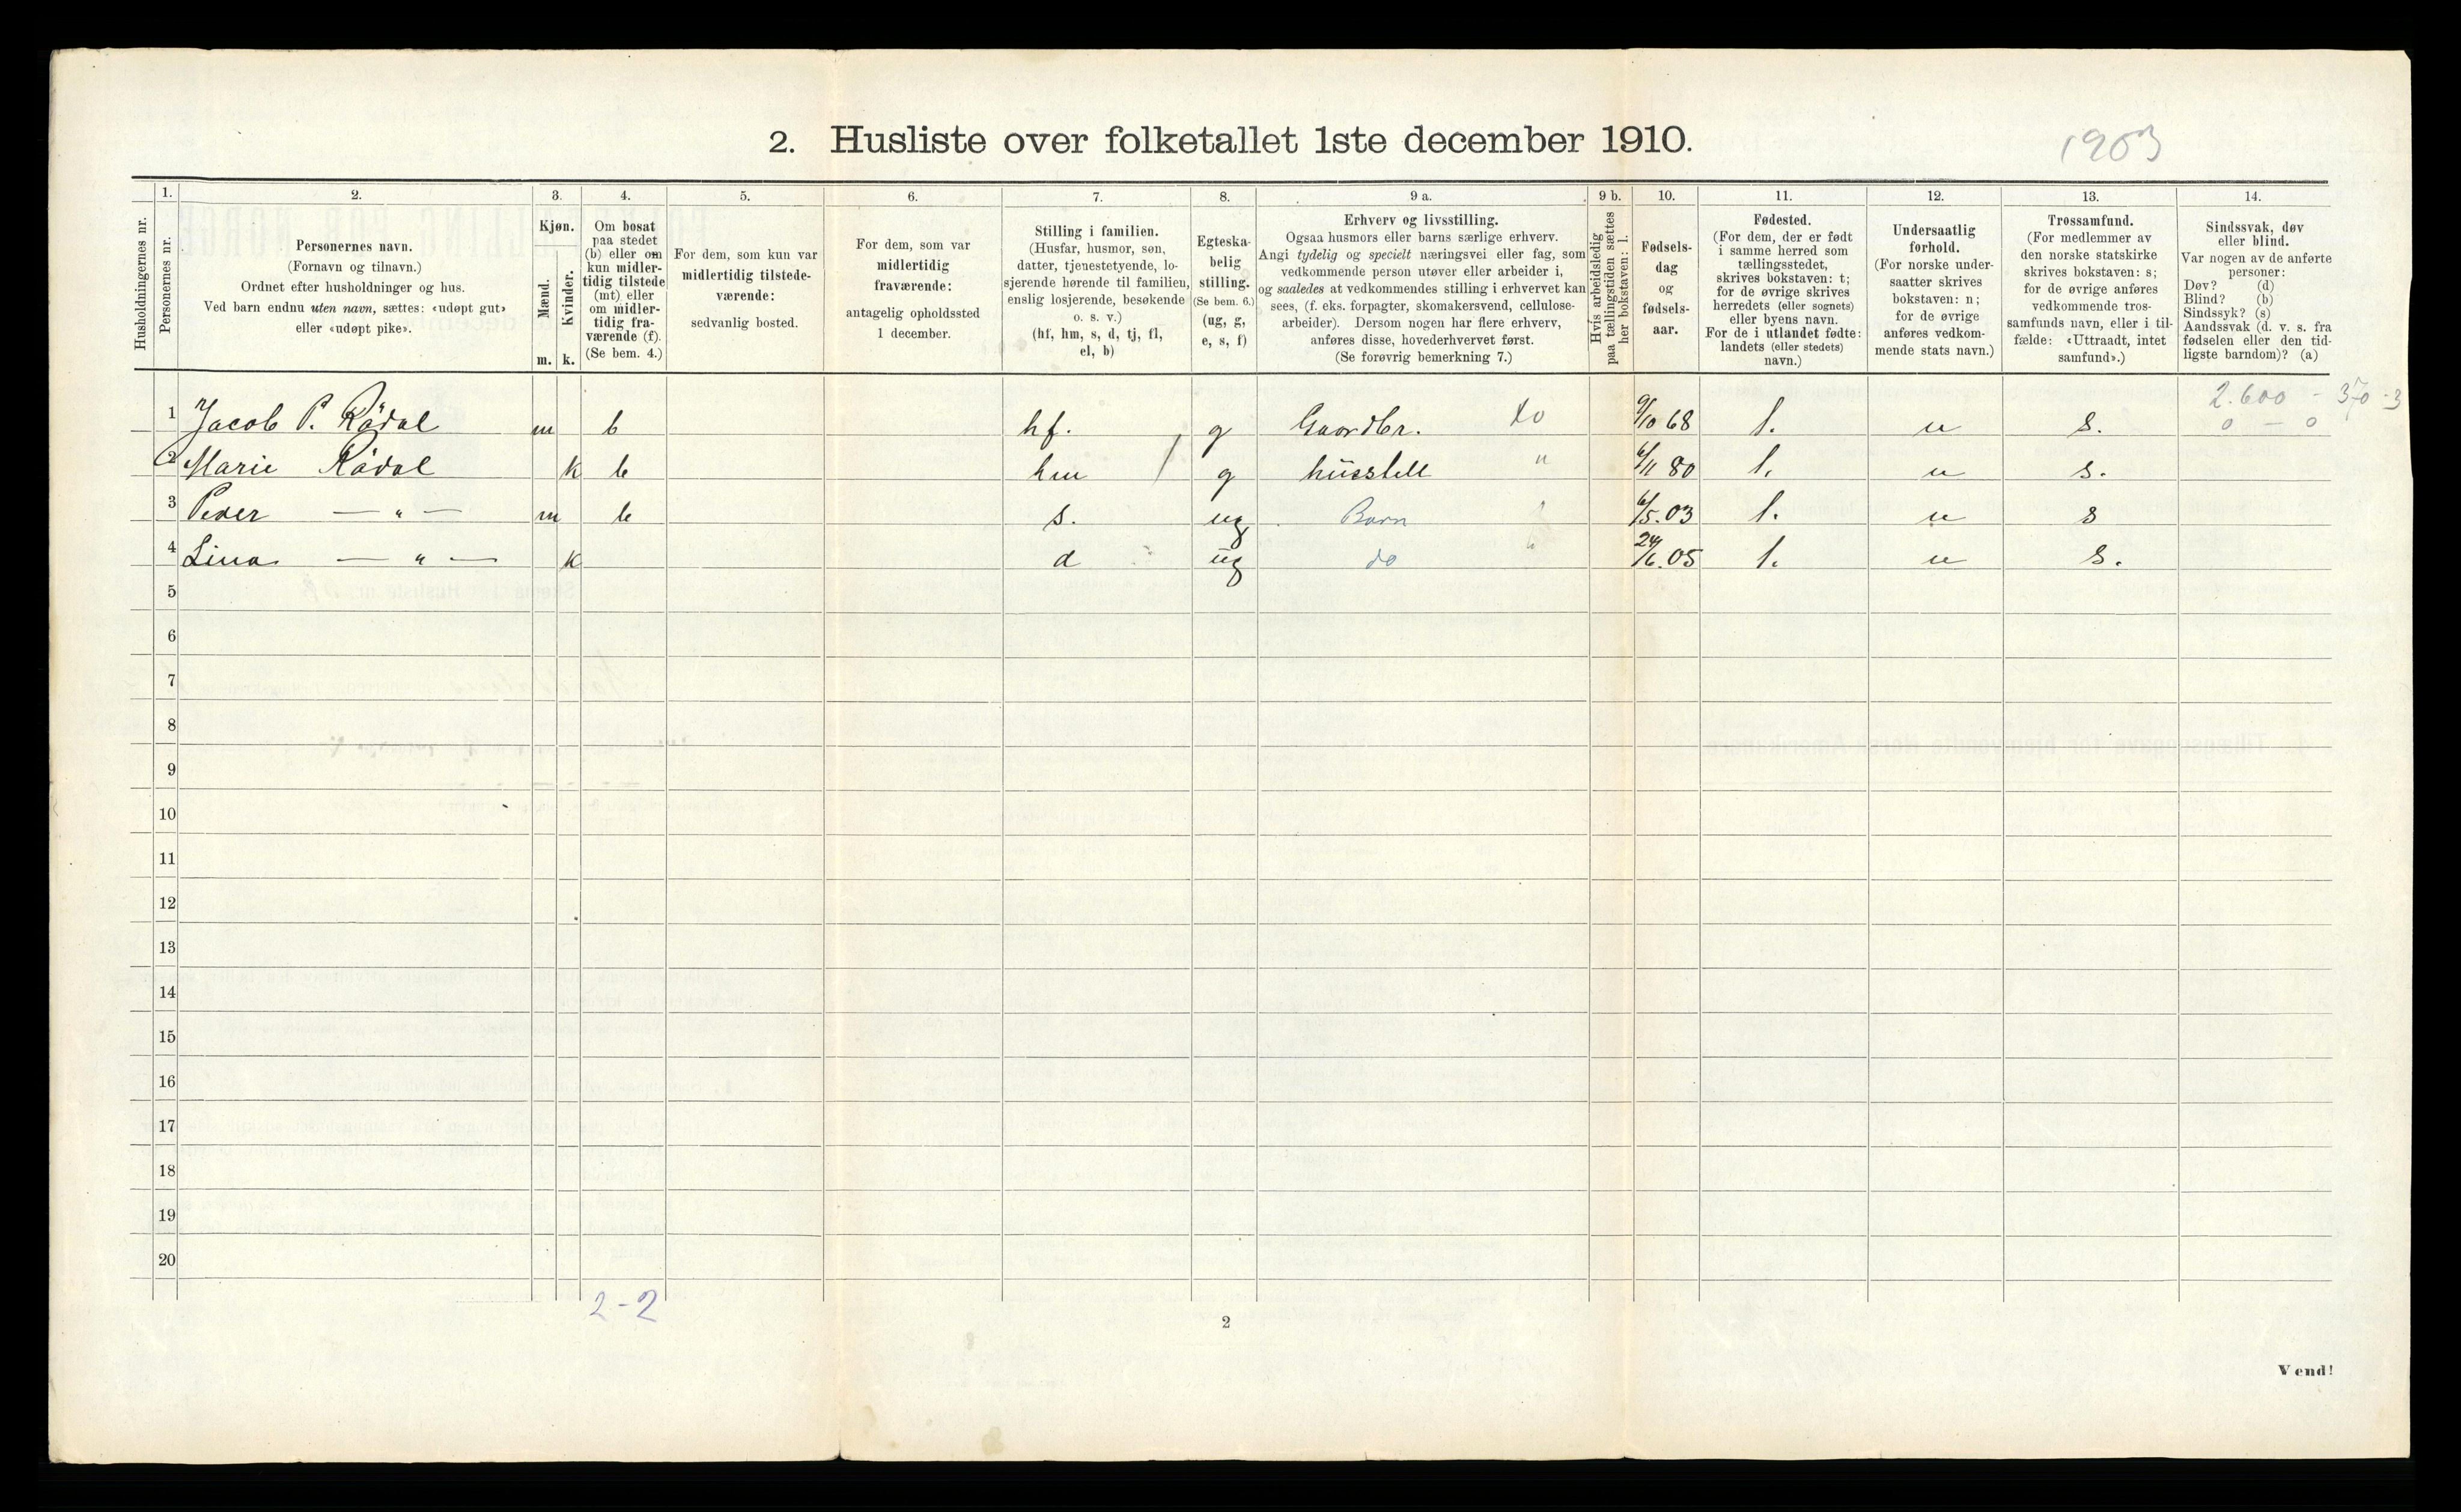 2. Husliste over folketallet 1ste december 1910.
1903
Husholdningernes nr.
1.
Personernes nr.
2.
Personernes navn.
(Fornavn og tilnavn.)
Ordnet efter husholdninger og hus.
Ved barn endnu uten navn, sættes: «udøpt gut»
eller «udøpt pike».
3.
Kjøn.
Mænd.
Kvinder.
m. k.
4.
Om bosat
paa stedet
(b) eller om
kun midler-
tidig tilstede
(mt) eller
om midler-
tidig fra-
værende (f).
(Se bem. 4.)
5.
For dem, som kun var
midlertidig tilstede-
værende:
sedvanlig bosted.
6.
For dem, som var
midlertidig
fraværende:
antagelig opholdssted
1 december.
7.
Stilling i familien.
(Husfar, husmor, søn,
datter, tjenestetyende, lo-
sjerende hørende til familien,
enslig losjerende, besøkende
o. s. v.)
(hf, hm, s, d, tj, fl,
el, b)
8.
Egteska-
belig
stilling.
(Se bem. 6.)
(ug, g,
e, s, f)
9 a.
Erhverv og livsstilling.
Ogsaa husmors eller barns særlige erhverv.
Angi tydelig og specielt næringsvei eller fag, som
vedkommende person utøver eller arbeider i,
og saaledes at vedkommendes stilling i erhvervet kan
sees, (f. eks. forpagter, skomakersvend, cellulose-
arbeider). Dersom nogen har flere erhverv,
anføres disse, hovederhvervet først.
(Se forøvrig bemerkning 7.)
9 b.
Hvis arbeidsledig
paa tællingstiden sættes
her bokstaven: l.
10.
Fødsels-
dag
og
fødsels-
aar.
11.
Fødested.
(For dem, der er født
i samme herred som
tællingsstedet,
skrives bokstaven: t;
for de øvrige skrives
herredets (eller sognets)
eller byens navn.
For de i utlandet fødte:
landets (eller stedets)
navn.)
12.
Undersaatlig
forhold.
(For norske under-
saatter skrives
bokstaven: n;
for de øvrige
anføres vedkom-
mende stats navn.)
13.
Trossamfund.
(For medlemmer av
den norske statskirke
skrives bokstaven: s;
for de øvrige anføres
vedkommende tros-
samfunds navn, eller i til-
fælde: «Uttraadt, intet
samfund».)
14.
Sindssvak, døv
eller blind.
Var nogen av de anførte
personer:
Døv? (d)
Blind? (b)
Sindssyk? (s)
Aandssvak (d. v. s. fra
fødselen eller den tid-
ligste barndom)? (a)
2.600 - 370-3
0 - 0
1 Jacob P. Rödal m b hf. g Gaardbr. 9/10 68 t. n s.
2 Marie Rödal k b hm g hüsstell " 6/11 80 t. n s.
3 Peder — " — m b s. ug Barn 6/5.03 t. n s
4 Lina — " — k d üg do 24/6.05 t. n s.
5
6
7
8
9
10
11
12
13
14
15
16
17
18
19
20
2-2
2
Vend!